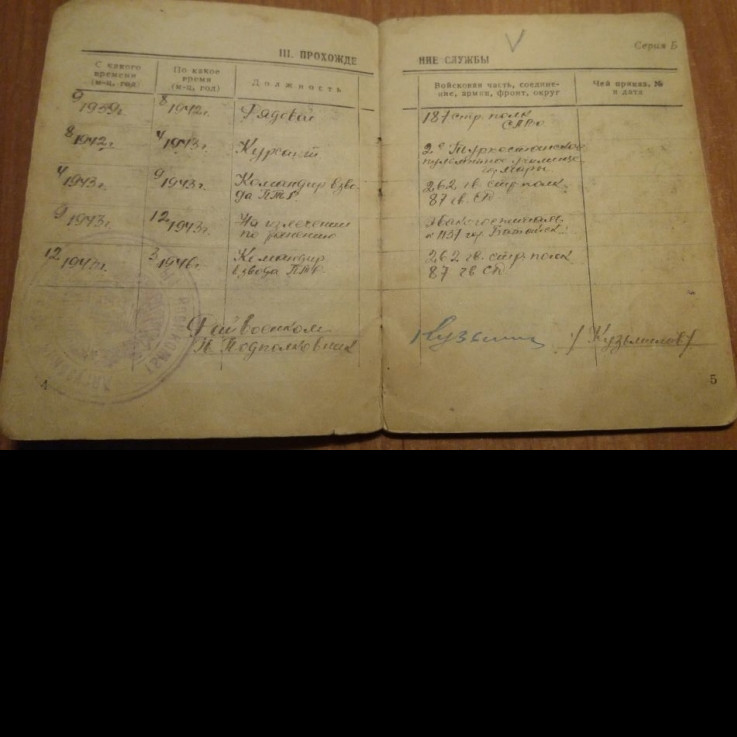 III. ПРОХОЖДЕ
С какого
время
(м-ц, год)
По какое
время
(м-ц, год)
Должность
9 1939г.
8 1942г.
Рядовой
8 1942г.
4 1943г.
Курсант
4 1943г.
9 1943г.
Командир взво-
да ПТР
9 1943г.
12 1943г.
На излечении
по ранению
12 1943г.
3 1946г.
Командир
взвода ПТР
Райвоенком
Подполковник
4
V
Серия Б
НИЕ СЛУЖБЫ
Войсковая часть, соедине-
ние, армия, фронт, округ
Чей приказ, №
и дата
187 стр. полк
2е Туркестанское
пулеметное училище
262 гв. стр. полк
87 гв. СД
Эвакогоспиталь
гор. Батайск
262 гв. стр. полк
87 гв СД
/Кузьминов/
5